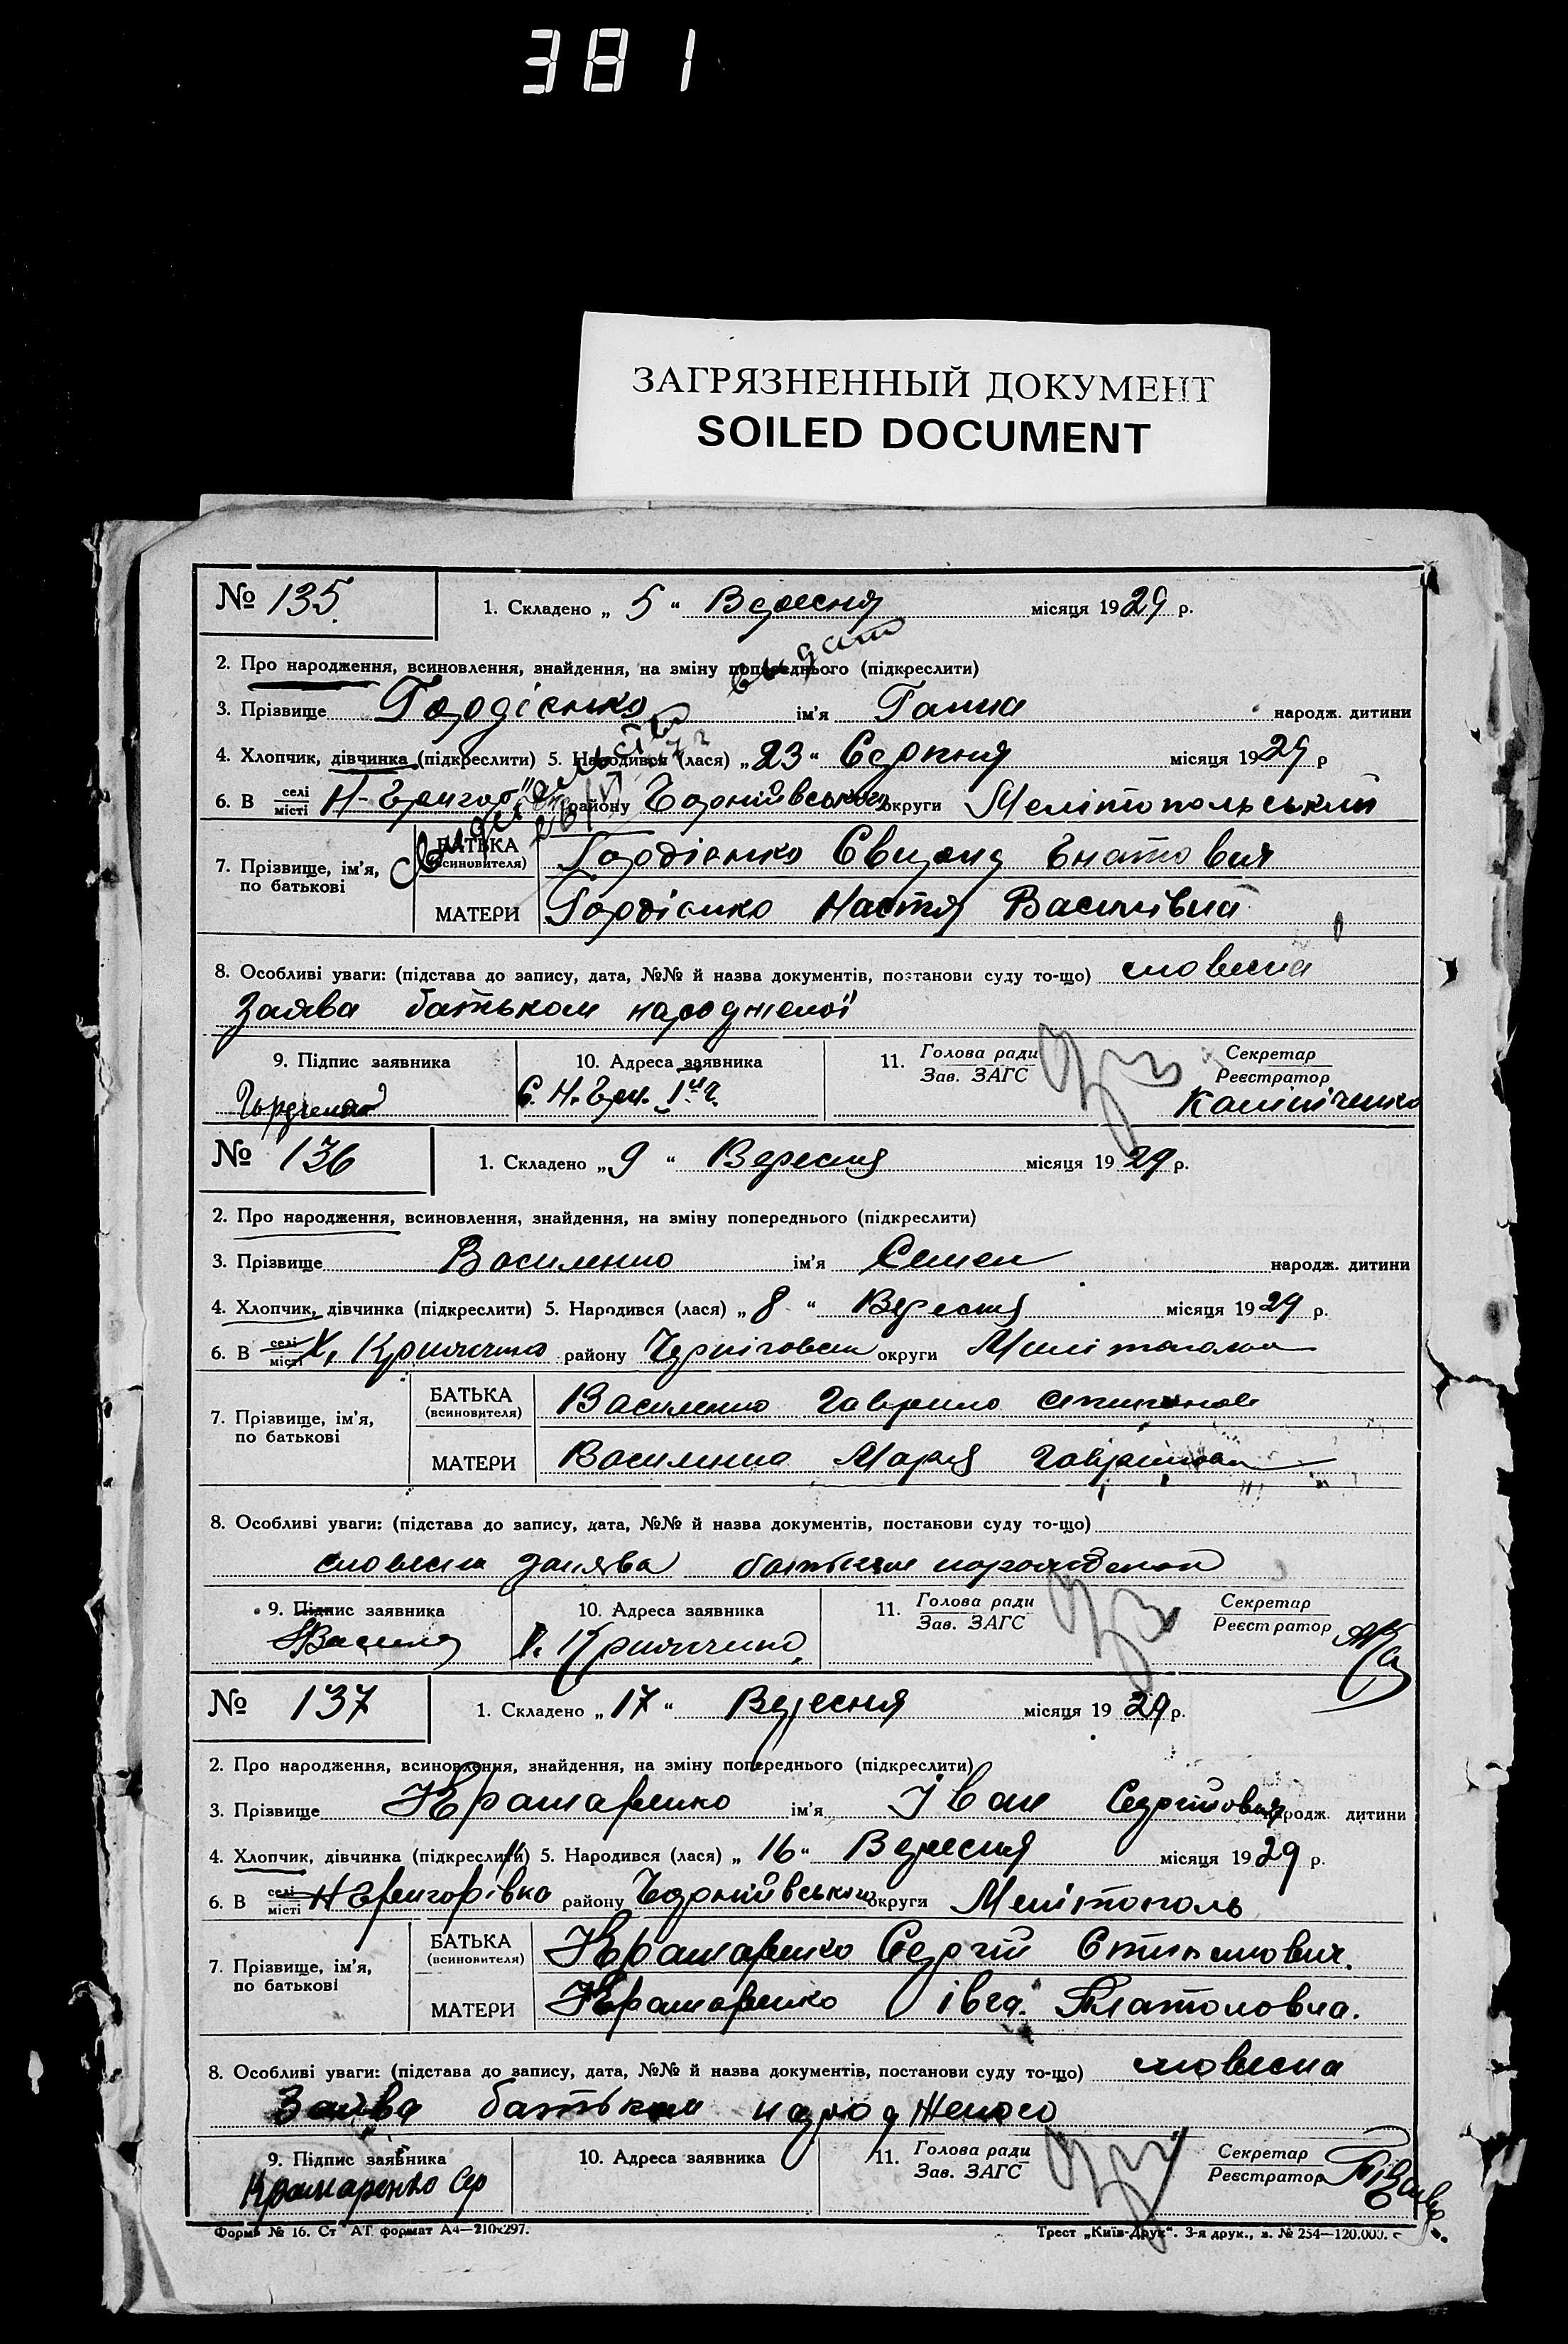 381
ЗАГРЯЗНЕННЫЙ ДОКУМЕНТ
SOILED DOCUMENT
№ 135. 1. Складено „ 5 “ Вересня місяця 1929 р.
2. Про народження, всиновлення, знайдення, на зміну попереднього (підкреслити)
3. Прізвище Гордієнко ім'я Ганна народж. дитини
4. Хлопчик, дівчинка (підкреслити) 5. Народився (лася) „ 23 “ Серпня місяця 1929 р
6. В селі місті району округи Мелітопольський
7. Прізвище, ім'я, по батькові
БАТЬКА (всиновителя) Гордієнко
МАТЕРИ Гордієнко Настя Василівна
8. Особливі уваги: (підстава до запису, дата, №№ й назва документів, постанови суду то-що) словесна
Заява батьком народженої
9. Підпис заявника 10. Адреса заявника 11. Голова ради Зав. ЗАГС Секретар Реєстратор
№ 136 1. Складено „ 9 “ Вересня місяця 1929 р.
2. Про народження, всиновлення, знайдення, на зміну попереднього (підкреслити)
3. Прізвище Василенко ім'я Семен народж. дитини
4. Хлопчик, дівчинка (підкреслити) 5. Народився (лася) „ 8 “ Вересня місяця 1929 р.
6. В селі місті району округи
7. Прізвище, ім'я, по батькові
БАТЬКА (всиновителя) Василенко Гаврило
МАТЕРИ Василенко Мария
8. Особливі уваги: (підстава до запису, дата, №№ й назва документів, постанови суду то-що)
словесна заява батьком
9. Підпис заявника 10. Адреса заявника 11. Голова ради Зав. ЗАГС Секретар Реєстратор
№ 137 1. Складено „ 17 “ Вересня місяця 1929 р.
2. Про народження, всиновлення, знайдення, на зміну попереднього (підкреслити)
3. Прізвище Крамаренко ім'я Іван Сергійович народж. дитини
4. Хлопчик, дівчинка (підкреслити) 5. Народився (лася) „ 16 “ Вересня місяця 1929 р.
6. В селі місті району округи Мелітополь
7. Прізвище, ім'я, по батькові
БАТЬКА (всиновителя) Крамаренко Сергій
МАТЕРИ Крамаренко Івга Платоновна.
8. Особливі уваги: (підстава до запису, дата, №№ й назва документів, постанови суду то-що) словесна
Заява батьком народженого
9. Підпис заявника 10. Адреса заявника 11. Голова ради Зав. ЗАГС Секретар Реєстратор
Крамаренко Сер
Форма № 16. Ст АТ формат А4—210x297. Трест „Київ-Друк“. 3-я друк., з. № 254—120.000.